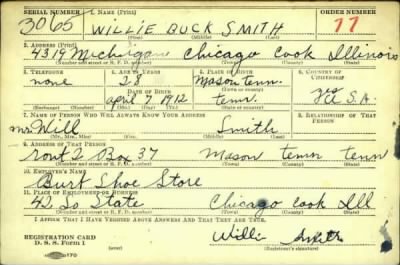 SERIAL NUMBER 1. NAME (Print) ORDER NUMBER
3065 WILLIE BUCK SMITH 77
(First) (Middle) (Last)
2. ADDRESS (Print)
4319 Michigan Chicago Cook Illinois
(Number and street or R. F. D. number) (Town) (County) (State)
3. TELEPHONE 4. AGE IN YEARS 5. PLACE OF BIRTH 6. COUNTRY OF CITIZENSHIP
none 28 Mason tenn. yes
DATE OF BIRTH (Town or county)
april 7 1912 tenn. U.S.A.
(Exchange) (Number) (Mo.) (Day) (Yr.) (State or country)
7. NAME OF PERSON WHO WILL ALWAYS KNOW YOUR ADDRESS 8. RELATIONSHIP OF THAT PERSON
mr Will Smith
(Mr., Mrs., Miss) (First) (Middle) (Last)
9. ADDRESS OF THAT PERSON
rout 2 Box 37 Mason tenn tenn
(Number and street or R. F. D. number) (Town) (County) (State)
10. EMPLOYER'S NAME
Burt Shoe Store
11. PLACE OF EMPLOYMENT OR BUSINESS
42 So State Chicago cook Ill
(Number and street or R. F. D. number) (Town) (County) (State)
I AFFIRM THAT I HAVE VERIFIED ABOVE ANSWERS AND THAT THEY ARE TRUE.
REGISTRATION CARD
D. S. S. Form 1 Willie Smith
(Registrant's signature)